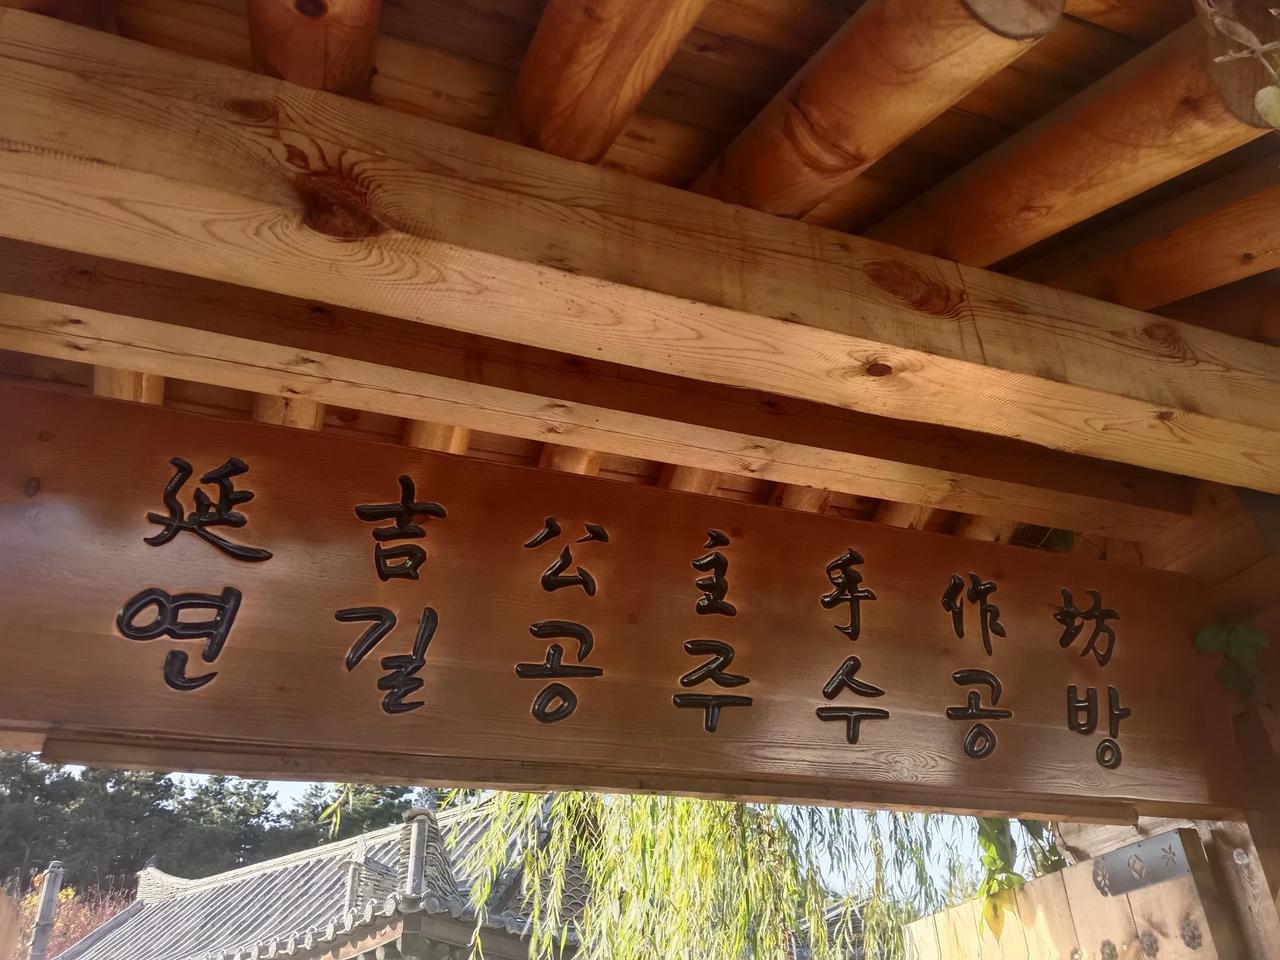 延吉公主手作坊
연길공주수공방